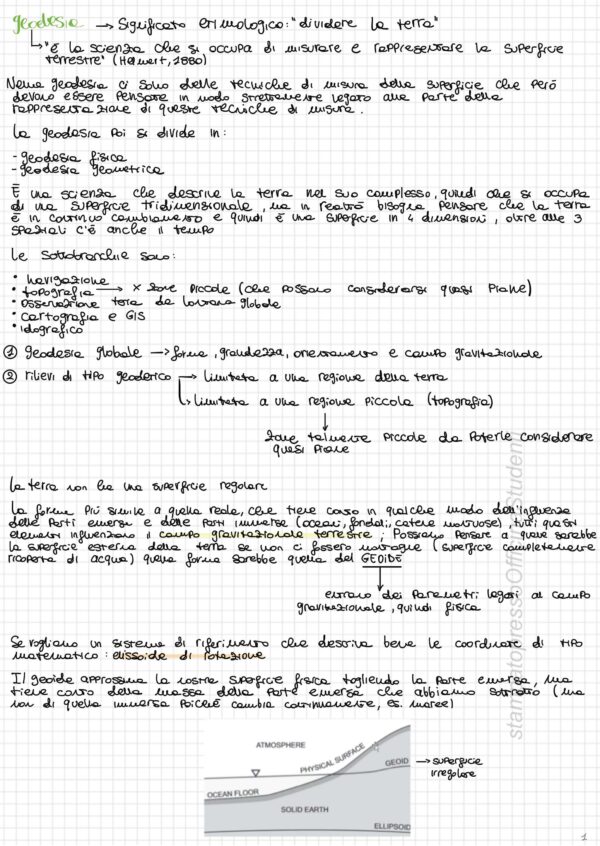 geodesia → Significato etimologico: "dividere la terra"
↳ "è la scienza che si occupa di misurare e rappresentare la superficie
terrestre" (Helmert, 1880)
Nella geodesia ci sono delle tecniche di misura della superficie che però
devono essere pensate in modo strettamente legato alla parte della
rappresentazione di queste tecniche di misura.
La geodesia poi si divide in:
- geodesia fisica
- geodesia geometrica
È una scienza che descrive la terra nel suo complesso, quindi che si occupa
di una superficie tridimensionale, ma in realtà bisogna pensare che la terra
è in continuo cambiamento e quindi è una superficie in 4 dimensioni, oltre alle 3
spaziali c'è anche il tempo
Le sottobranche sono:
• navigazione
• topografia → x zone piccole (che possono considerarsi quasi piane)
• osservazione terra da lontano globale
• cartografia e GIS
• idrografico
① geodesia globale → forma, grandezza, orientamento e campo gravitazionale
② rilievi di tipo geodetico → limitata a una regione della terra
↳ limitata a una regione piccola (topografia)
zone talmente piccole da poterle considerare
quasi piane
La terra non ha una superficie regolare
La forma più simile a quella reale, che tiene conto in qualche modo dell'influenza
delle parti emerse e delle parti immerse (oceani, fondali, catene montuose), tutti questi
elementi influenzano il campo gravitazionale terrestre; Possiamo pensare a quale sarebbe
la superficie esterna della terra se non ci fossero montagne (superficie completamente
ricoperta di acqua) quella forma sarebbe quella del GEOIDE
entrano dei parametri legati al campo
gravitazionale, quindi fisica
Se vogliamo un sistema di riferimento che descriva bene le coordinate di tipo
matematico: elissoide di rotazione
Il geoide approssima la nostra superficie fisica togliendo la parte emersa, ma
tiene conto della massa della parte emersa che abbiamo sottratto (ma
non di quella immersa poiché cambia continuamente, es. maree)
ATMOSPHERE
PHYSICAL SURFACE
GEOID → superficie
irregolare
OCEAN FLOOR
SOLID EARTH
ELLIPSOID
1